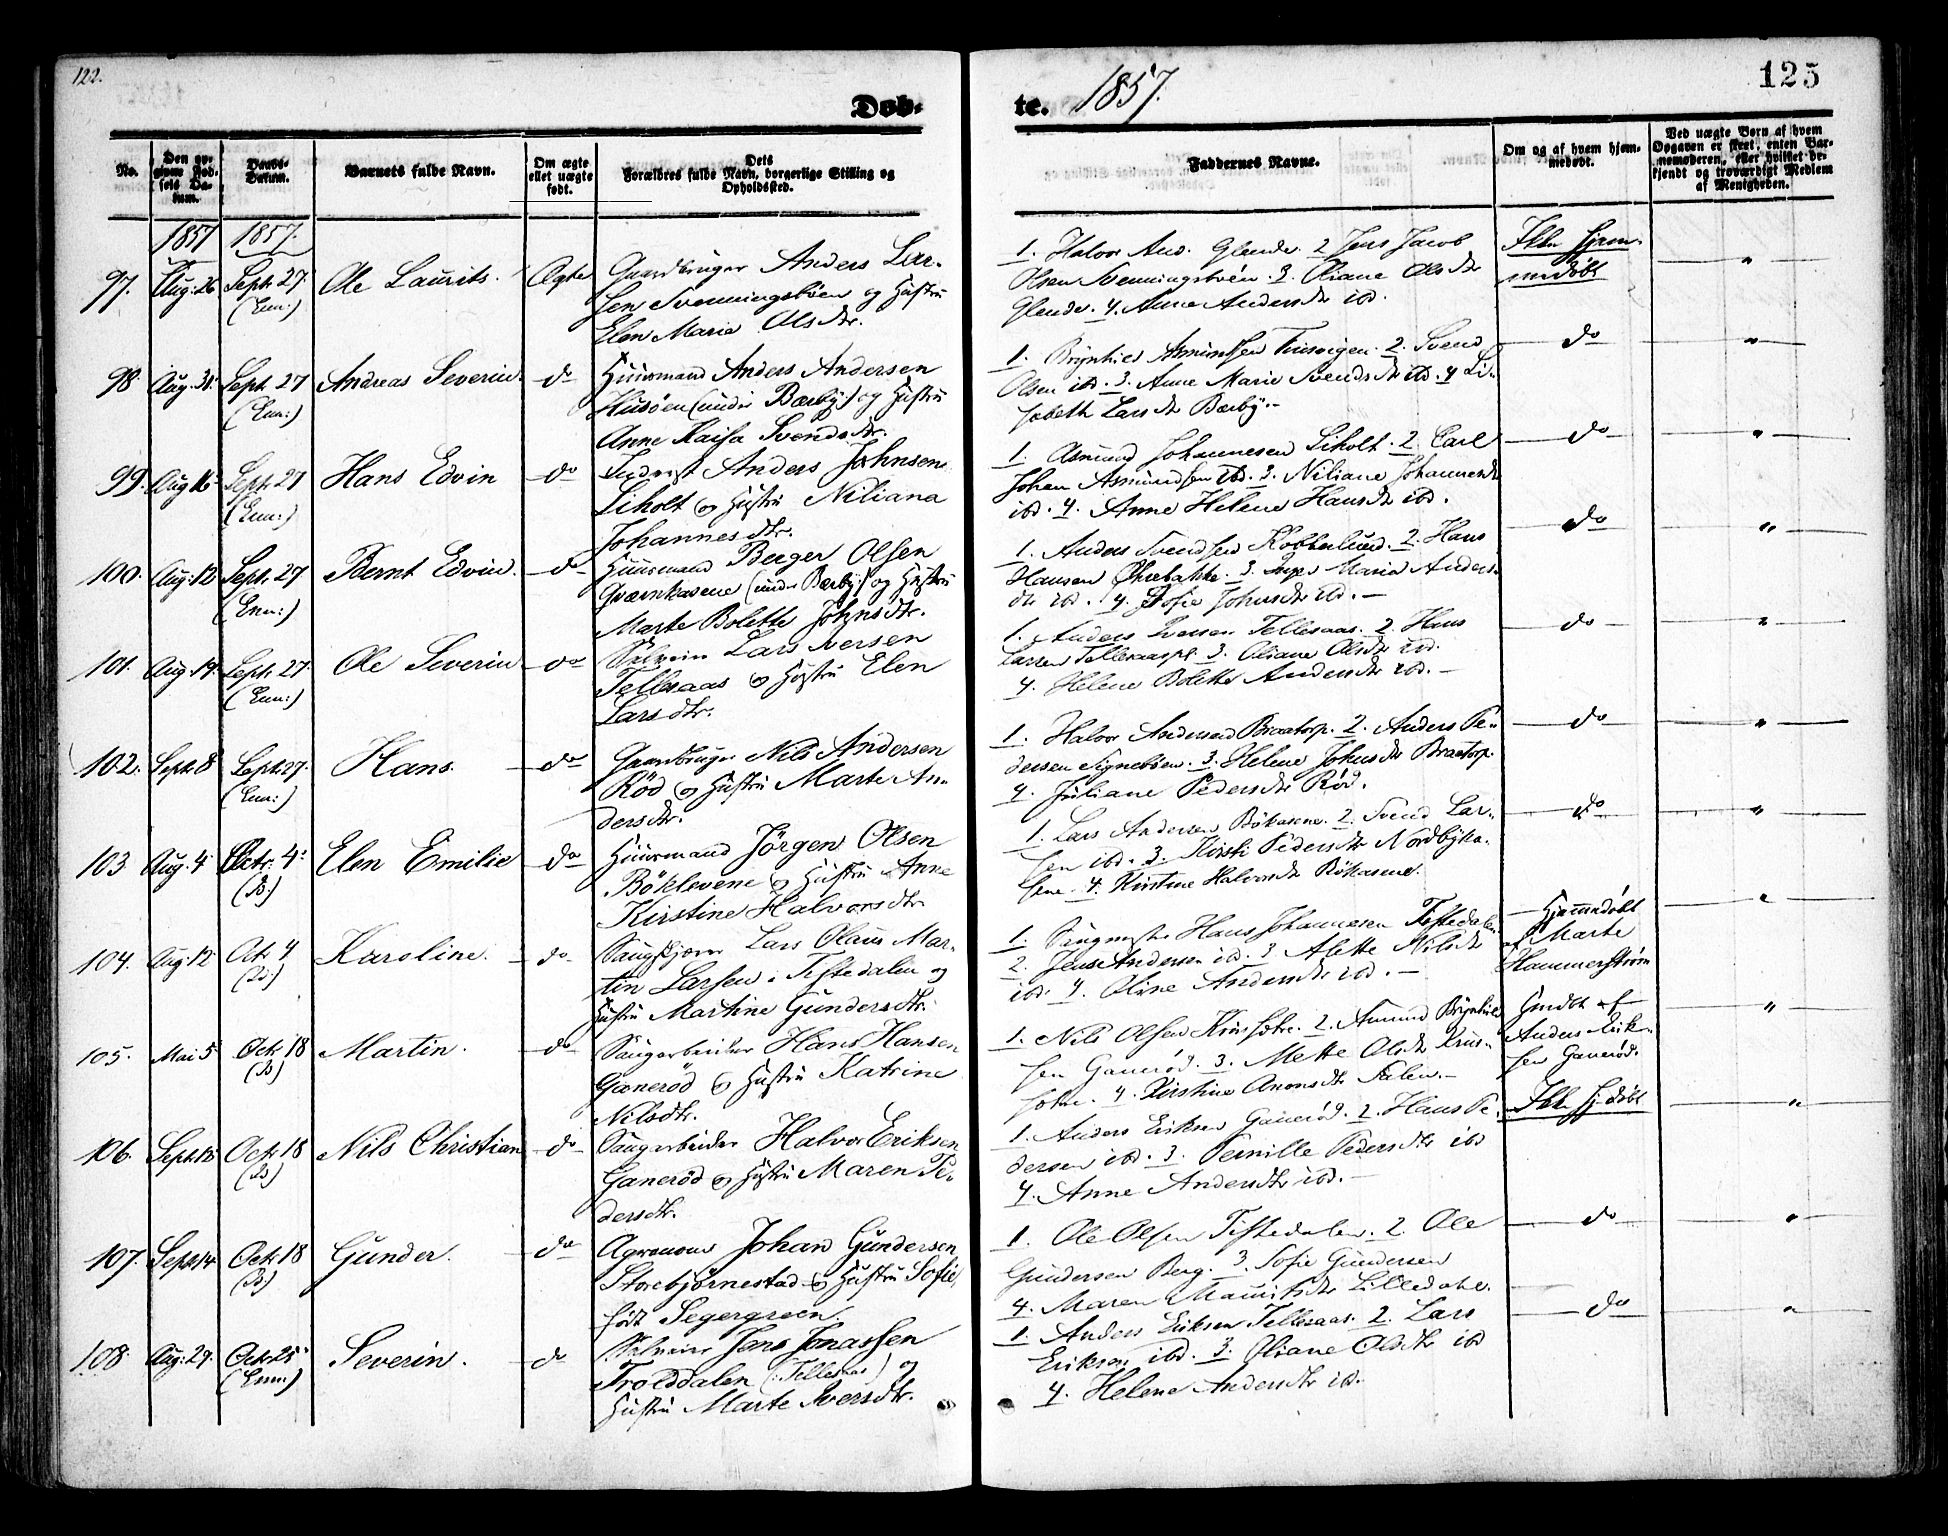 122.
125
Døb-
te. 1857.
No.
Den op-
givne Fød-
sels Da-
tum.
Daabs-
Datum.
Barnets fulde Navn.
Om ægte
ellet uægte
født.
Dets
Forældres fulde Navn, borgerlige Stilling og
Opholdssted.
Faddernes Navne.
Om og af hvem hjem-
medøbt.
Ved uægte Børn af hvem
Opgaven er skeet, enten Bar-
nemoderen, eller hvilket be-
kjendt og troværdigt Medlem
af Menigheden.
1857 1857.
97. Aug: 26 Sept: 27 Ole Laurits. Ægte Gaardbruger Anders Lar-
(Enn:)
sen Svenningsbøen og Hustru
Elen Marie Olsdtr.
1. Halvor And. Glende. 2 Jens Jacob
Olsen Svenningsbøen. 3. Oliane Olsdtr
Glende. 4. Anne Andersdtr ibd.
Ikke hjem-
medøbt
"
98. Aug: 30. Sept. 27 Andreas Severin. do Huusmand Anders Andersen
(Enn:)
Husøen (under Bærby) og Hustru
Anne Kaisa Svendsdtr.
1. Brynhild Asmundsen 2. Svend
Olsen ibd. 3. Anne Marie Svendsdtr ibd. 4 Li-
sabeth Larsdtr Bærby.-
do "
99. Aug 16 Sept. 27 Hans Edvin do Inderst Anders Johnsen
(Enn:)
Liholt og Hustru Niliana
Johannesdtr.
1. Asmund Johannesen Liholt. 2. Carl
Johan Asmundsen ibd. 3. Niliane Johannesdtr
ibd. 4. Anne Helene Hansdtr ibd.
do "
100. Aug: 12 Sept. 27 Bernt Edvin. do Huusmand Berger Olsen
(Enn:)
Qværnkasene (under Bærby) og Hustru
Marte Bolette Johnsdtr.
1. Anders Svendsen Kobberlund. 2. Hans
Hansen 3. Inger Maria Anders-
dtr ibd. 4. Sofie Johnsdtr ibd. -
do "
101. Aug. 19. Sept. 27 Ole Severin do Selveier Lars Iversen
(Enn:)
Tellesaas og Hustru Elen
Larsdtr.
1. Anders Iversen Tellesaas. 2. Hans
Larsen Tellesaaspl. 3. Oliane Olsdtr ibd.
4. Helene Bolette Andersdtr ibd. -
do "
102. Sept. 8 Sept. 27. Hans. do Gaardbruger Nils Andersen
(Enn:)
Röd og Hustru Marte An-
dersdtr.
1. Halvor Andersen Braatorp. 2. Anders Pe-
dersen Signebøen. 3. Helene Johnsdtr Braatorp.
4. Juliane Pedersdtr Rød.
do "
103 Aug. 4 Octr. 4. Elen Emilie do Huusmand Jörgen Olsen
(B.)
Böklevene og Hustru Anne
Kirstine Halvorsdtr
1. Lars Andersen Bökasene. 2. Svend Lar-
sen ibd. 3. Kirsti Pedersdtr Nordbyka-
sene. 4. Kirstine Halvorsdtr Bökasene.
do "
104. Aug. 12 Oct. 4 Karoline. do Saugskjærer Lars Olaus Mar-
(Id:)
tin Larsen i Tistedalen og
Hustru Martine Gundersdtr.
1. Saugmester Hans Johannesen Tistedalen
2. Jens Andersen ibd. 3 Alette Nilsdtr
ibd. 4. Oline Andersdtr ibd. -
Hjemmedöbt
af Marte
Hammerström
"
105. Mai 5 Octr 18 Martin. do Saugarbeider Hans Hansen
(B)
Ganeröd og Hustru Katrine
Nilsdtr.
1. Nils Olsen Krussøtre. 2. Asmund Brynhild-
sen Ganeröd. 3. Mette Olsdtr Krus-
søtre. 4. Kirstine Aronsdtr
af
Anders Erik-
sen Ganeröd.
"
106. Sept. 18 Octr 18 Nils Christian do Saugarbeider Halvor Eriksen
(Id:)
Ganeröd og Hustru Maren Pe-
dersdtr.
1. Anders Eriksen Ganeröd. 2. Hans Pe-
dersen ibd. 3. Pernille Pedersdtr ibd
4. Anne Andersdtr ibd. -
Ikke hj-døbt
"
107. Sept. 14 Octr 18 Gunder. do Agronom Johan Gundersen
(B.)
Storebjörnestad og Hustru Sofie,
født Segergreen.
1. Ole Olsen Tistedalen. 2 Ole
Gundersen Berg. 3. Sofie Gundersen
4. Maren Mauritsdtr Lilledahl.
do "
108. Aug. 29. Octr. 25 Severin. do Selveier Jens Jonassen
(Enn.)
Trolddalen (: Tellesaas) og
Hustru Marte Iversdtr.
1. Anders Eriksen Tellesaas. 2. Lars
Eriksen ibd. 3. Oliane Olsdtr ibd
4. Helene Andersdtr ibd.
do "